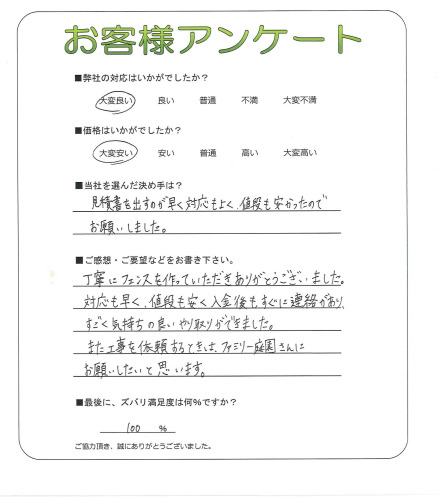 お客様アンケート
■弊社の対応はいかがでしたか？
大変良い 良い 普通 不満 大変不満
■価格はいかがでしたか？
大変安い 安い 普通 高い 大変高い
■当社を選んだ決め手は？
見積書を出すのが早く対応もよく、値段も安かったので
お願いしました。
■ご感想・ご要望などをお書き下さい。
丁寧にフェンスを作っていただきありがとうございました。
対応も早く、値段も安く入金後もすぐに連絡があり、
すごく気持ちの良いやり取りができました。
また工事を依頼するときは、ファミリー庭園さんに
お願いしたいと思います。
■最後に、ズバリ満足度は何％ですか？
100 ％
ご協力頂き、誠にありがとうございました。